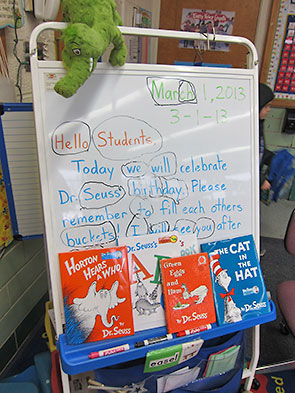 March 1, 2013
3-1-13
Hello Students,
Today we will celebrate
Dr. Seuss' birthday. Please
remember to fill each others
buckets! I will see you after
Dr. Seuss's
HORTON
HEARS A WHO!
By Dr. Seuss
Green
Eggs
and
Ham
By Dr. Seuss
THE CAT
IN THE
HAT
By Dr. Seuss
easel